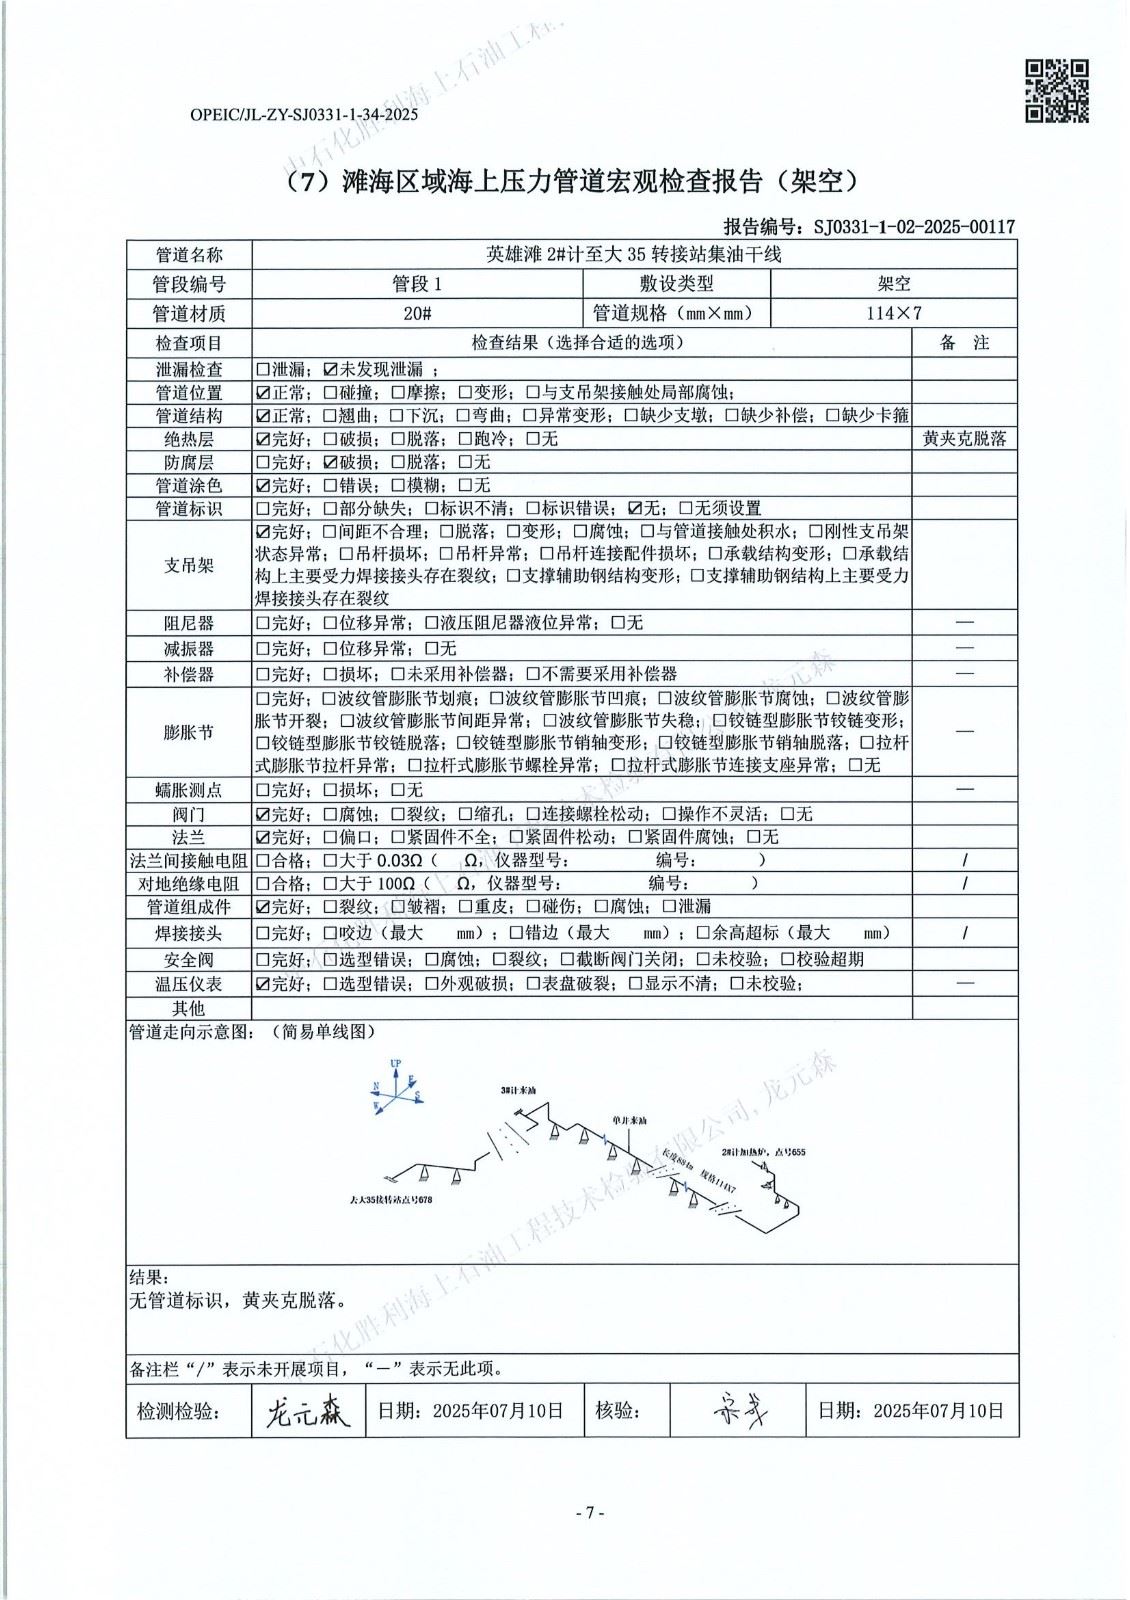 OPEIC/JL-ZY-SJ0331-1-34-2025
（7）滩海区域海上压力管道宏观检查报告（架空）
报告编号：SJ0331-1-02-2025-00117
管道名称 英雄滩 2#计至大 35 转接站集油干线
管段编号 管段 1 敷设类型 架空
管道材质 20# 管道规格（mm×mm） 114×7
检查项目 检查结果（选择合适的选项） 备 注
泄漏检查 □泄漏；☑未发现泄漏 ；
管道位置 ☑正常；□碰撞；□摩擦；□变形；□与支吊架接触处局部腐蚀；
管道结构 ☑正常；□翘曲；□下沉；□弯曲；□异常变形；□缺少支墩；□缺少补偿；□缺少卡箍
绝热层 ☑完好；□破损；□脱落；□跑冷；□无 黄夹克脱落
防腐层 □完好；☑破损；□脱落；□无
管道涂色 ☑完好；□错误；□模糊；□无
管道标识 □完好；□部分缺失；□标识不清；□标识错误；☑无；□无须设置
支吊架 ☑完好；□间距不合理；□脱落；□变形；□腐蚀；□与管道接触处积水；□刚性支吊架
状态异常；□吊杆损坏；□吊杆异常；□吊杆连接配件损坏；□承载结构变形；□承载结
构上主要受力焊接接头存在裂纹；□支撑辅助钢结构变形；□支撑辅助钢结构上主要受力
焊接接头存在裂纹
阻尼器 □完好；□位移异常；□液压阻尼器液位异常；□无 —
减振器 □完好；□位移异常；□无 —
补偿器 □完好；□损坏；□未采用补偿器；□不需要采用补偿器 —
膨胀节 □完好；□波纹管膨胀节划痕；□波纹管膨胀节凹痕；□波纹管膨胀节腐蚀；□波纹管膨
胀节开裂；□波纹管膨胀节间距异常；□波纹管膨胀节失稳；□铰链型膨胀节铰链变形；
□铰链型膨胀节铰链脱落；□铰链型膨胀节销轴变形；□铰链型膨胀节销轴脱落；□拉杆
式膨胀节拉杆异常；□拉杆式膨胀节螺栓异常；□拉杆式膨胀节连接支座异常；□无 —
蠕胀测点 □完好；□损坏；□无 —
阀门 ☑完好；□腐蚀；□裂纹；□缩孔；□连接螺栓松动；□操作不灵活；□无
法兰 ☑完好；□偏口；□紧固件不全；□紧固件松动；□紧固件腐蚀；□无
法兰间接触电阻 □合格；□大于 0.03Ω（ Ω，仪器型号： 编号： ） /
对地绝缘电阻 □合格；□大于 100Ω（ Ω，仪器型号： 编号： ） /
管道组成件 ☑完好；□裂纹；□皱褶；□重皮；□碰伤；□腐蚀；□泄漏
焊接接头 □完好；□咬边（最大 mm）；□错边（最大 mm）；□余高超标（最大 mm） /
安全阀 □完好；□选型错误；□腐蚀；□裂纹；□截断阀门关闭；□未校验；□校验超期
温压仪表 ☑完好；□选型错误；□外观破损；□表盘破裂；□显示不清；□未校验； —
其他
管道走向示意图：（简易单线图）
UP
N E
W S
3#计来油
单井来油
2#计加热炉，点号655
长度884m 规格114X7
去大35接转站点号678
结果：
无管道标识，黄夹克脱落。
备注栏“/”表示未开展项目，“—”表示无此项。
检测检验： 龙元森 日期：2025年07月10日 核验： 日期：2025年07月10日
- 7 -
中石化胜利海上石油工程技术检验有限公司, 龙元森